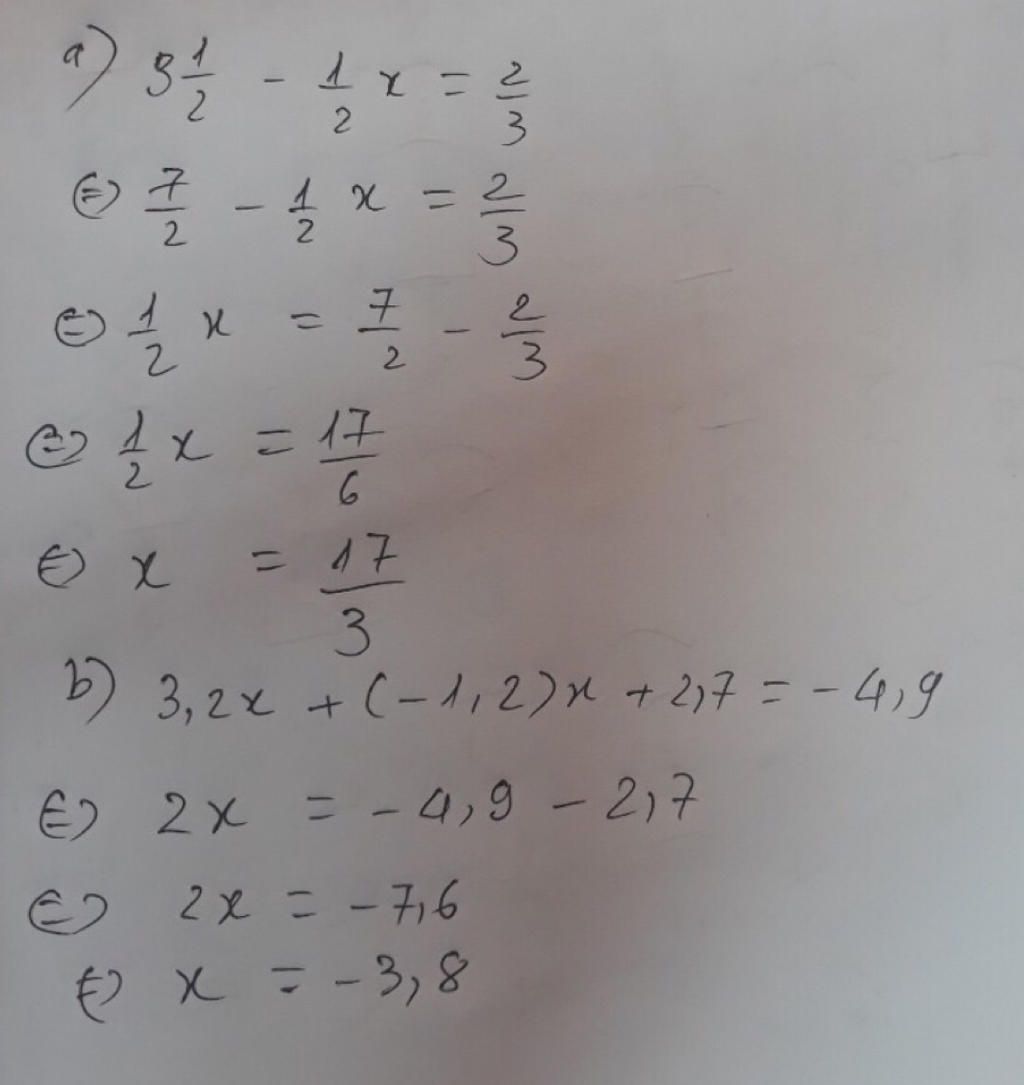 a) 3 1/2 - 1/2 x = 2/3
⇔ 7/2 - 1/2 x = 2/3
⇔ 1/2 x = 7/2 - 2/3
⇔ 1/2 x = 17/6
⇔ x = 17/3
b) 3,2x + (-1,2)x + 2,7 = -4,9
⇔ 2x = -4,9 - 2,7
⇔ 2x = -7,6
⇔ x = -3,8